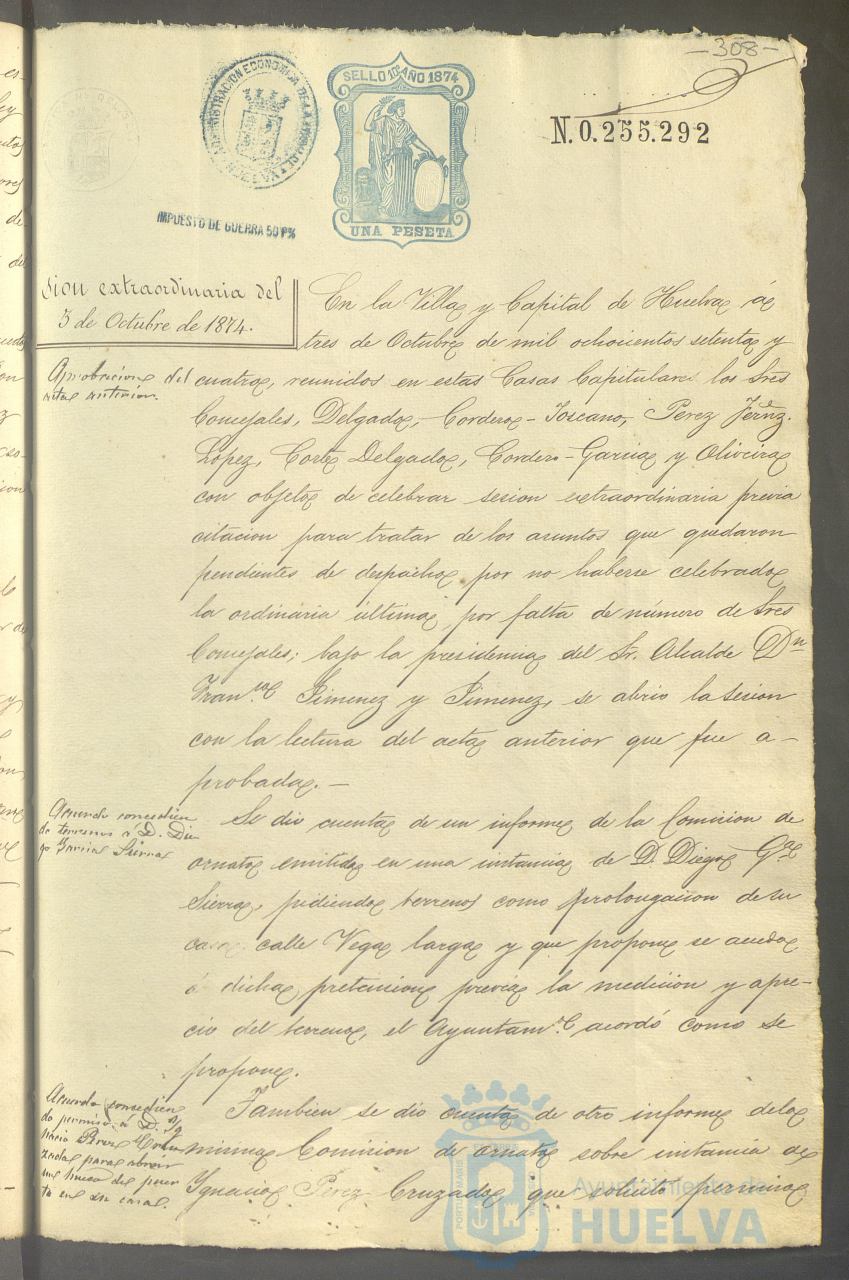 -308-
ADMINISTRACION ECONOMICA DE LA PROV. DE HUELVA
SELLO 10º AÑO 1874
UNA PESETA
N.0.255.292
IMPUESTO DE GUERRA 50 P%
sion extraordinaria del
3 de Octubre de 1874.
Aprobacion del
acta anterior.
En la Villa y Capital de Huelva á
tres de Octubre de mil ochocientos setenta y
cuatro, reunidos en estas Casas Capitulares los Sres
Concejales, Delgado, Cordero-Toscano, Perez Fernz.
Lopez, Corte Delgado, Cordero-Garcia y Oliveira
con objeto de celebrar sesion extraordinaria previa
citacion para tratar de los asuntos que quedaron
pendientes de despacho por no haberse celebrado
la ordinaria última, por falta de número de Sres
Concejales; bajo la presidencia del Sr. Alcalde Dn
Franco Jimenez y Jimenez, se abrio la sesion
con la lectura del acta anterior que fue a-
probada.-
Acuerdo concedien
do terrenos á D. Die
go Garcia Sierra
Se dio cuenta de un informe de la Comision de
ornato emitido en una instancia de D. Diego Ga
Sierra, pidiendo terrenos como prolongacion de su
casa calle Vega larga y que propone se acceda
á dicha pretension previa la medicion y apre-
cio del terreno, el Ayuntamto acordó como se
propone.
Acuerdo concedien
do permiso á D. Yg
nacio Perez Cru
zado para abrir
un hueco de puer
ta en su casa.
Tambien se dio cuenta de otro informe dela
misma Comision de ornato sobre instancia de
Ygnacio Perez Cruzado que solicita permiso
Ayuntamiento de
HUELVA